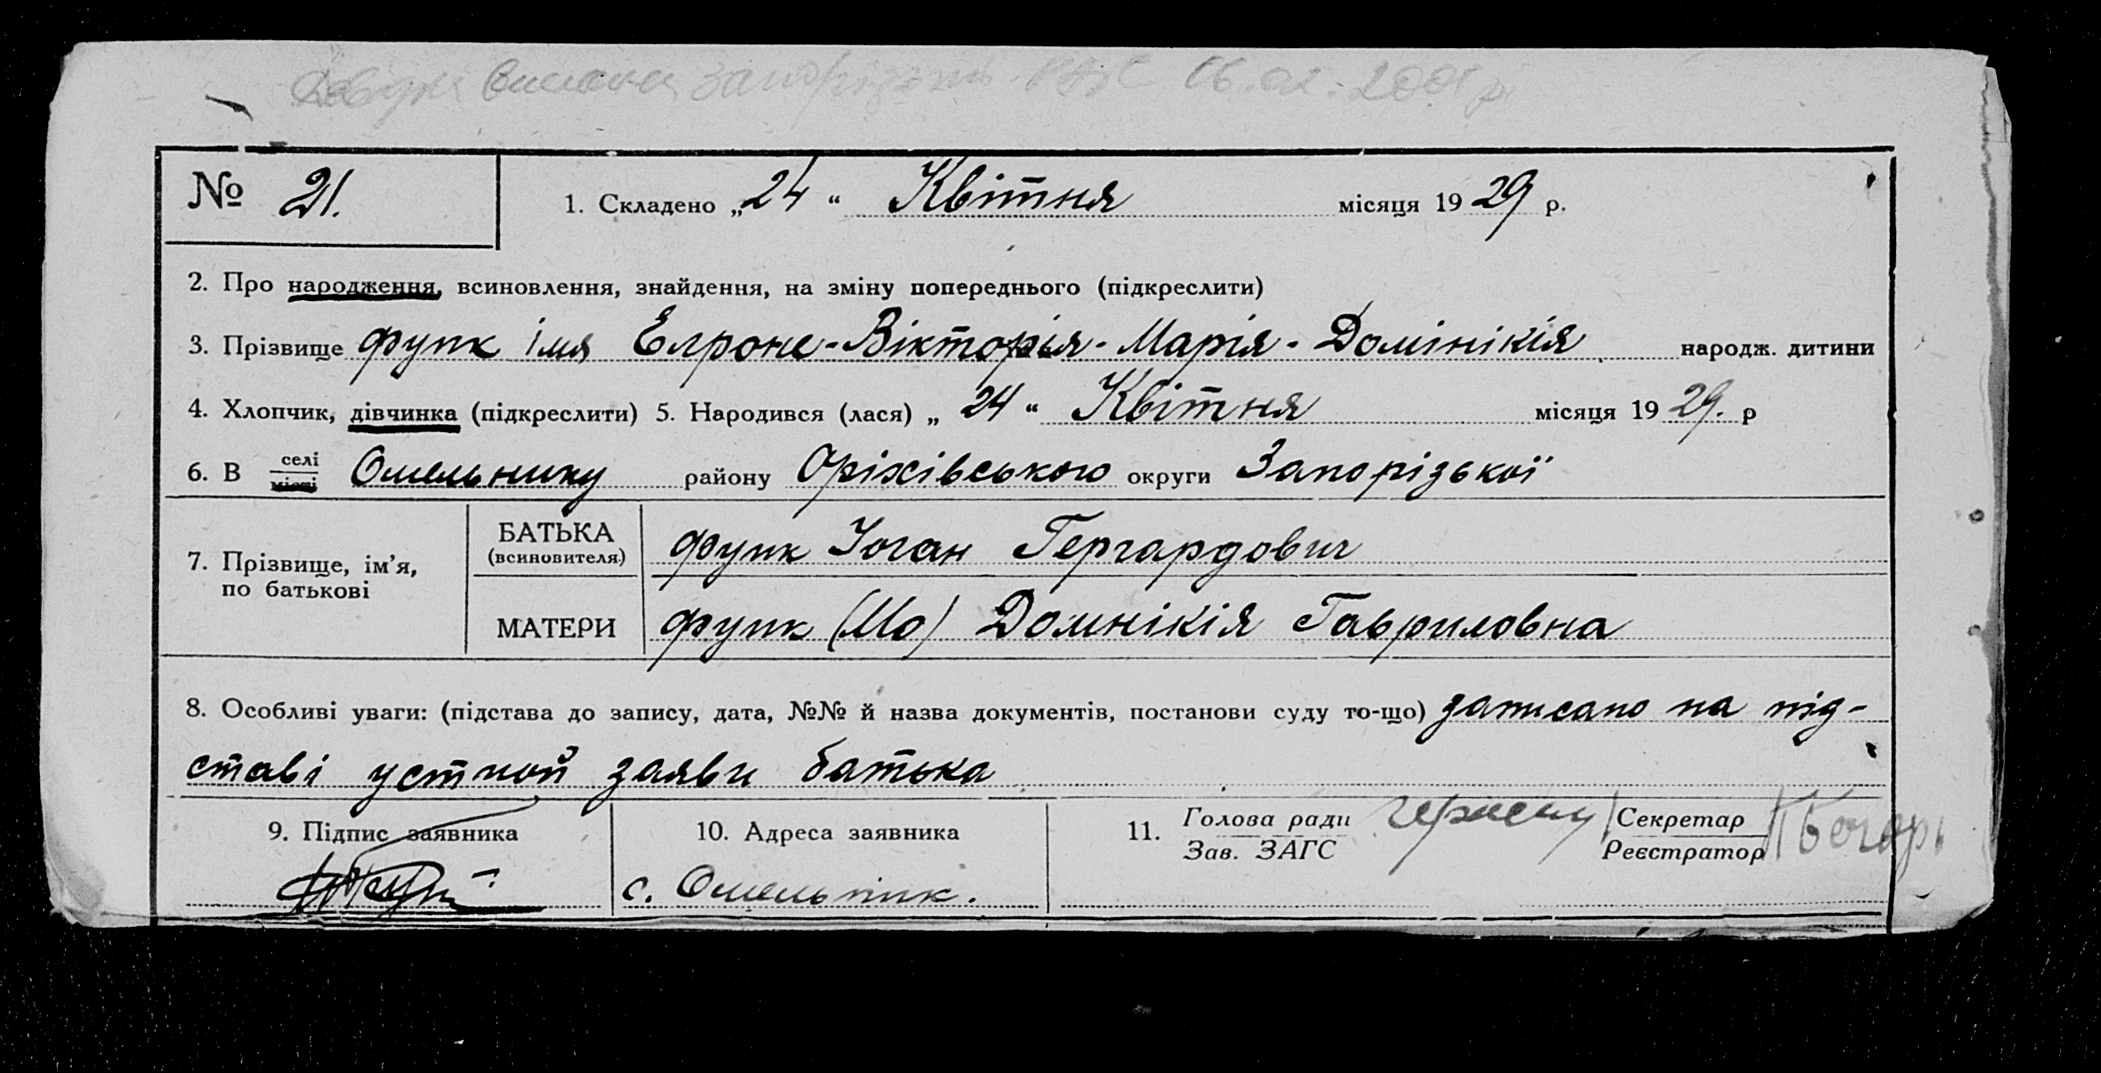 вислана 06.02.2001 р
№ 21. 1. Складено „24“ Квітня місяця 1929 р.
2. Про народження, всиновлення, знайдення, на зміну попереднього (підкреслити)
3. Прізвище Функ імя Елроне-Вікторія-Марія-Домінікія народж. дитини
4. Хлопчик, дівчинка (підкреслити) 5. Народився (лася) „24“ Квітня місяця 1929. р
6. В селі місті Омельнику району Оріхівського округи Запорізької
7. Прізвище, ім’я, по батькові
БАТЬКА (всиновителя) Функ Іоган Гергардович
МАТЕРИ Функ (Мо) Домнікія Гавриловна
8. Особливі уваги: (підстава до запису, дата, №№ й назва документів, постанови суду то-що) записано на під-
ставі устной заяви батька
9. Підпис заявника 10. Адреса заявника 11. Голова ради Секретар
Зав. ЗАГС Реєстратор
с. Омельник.